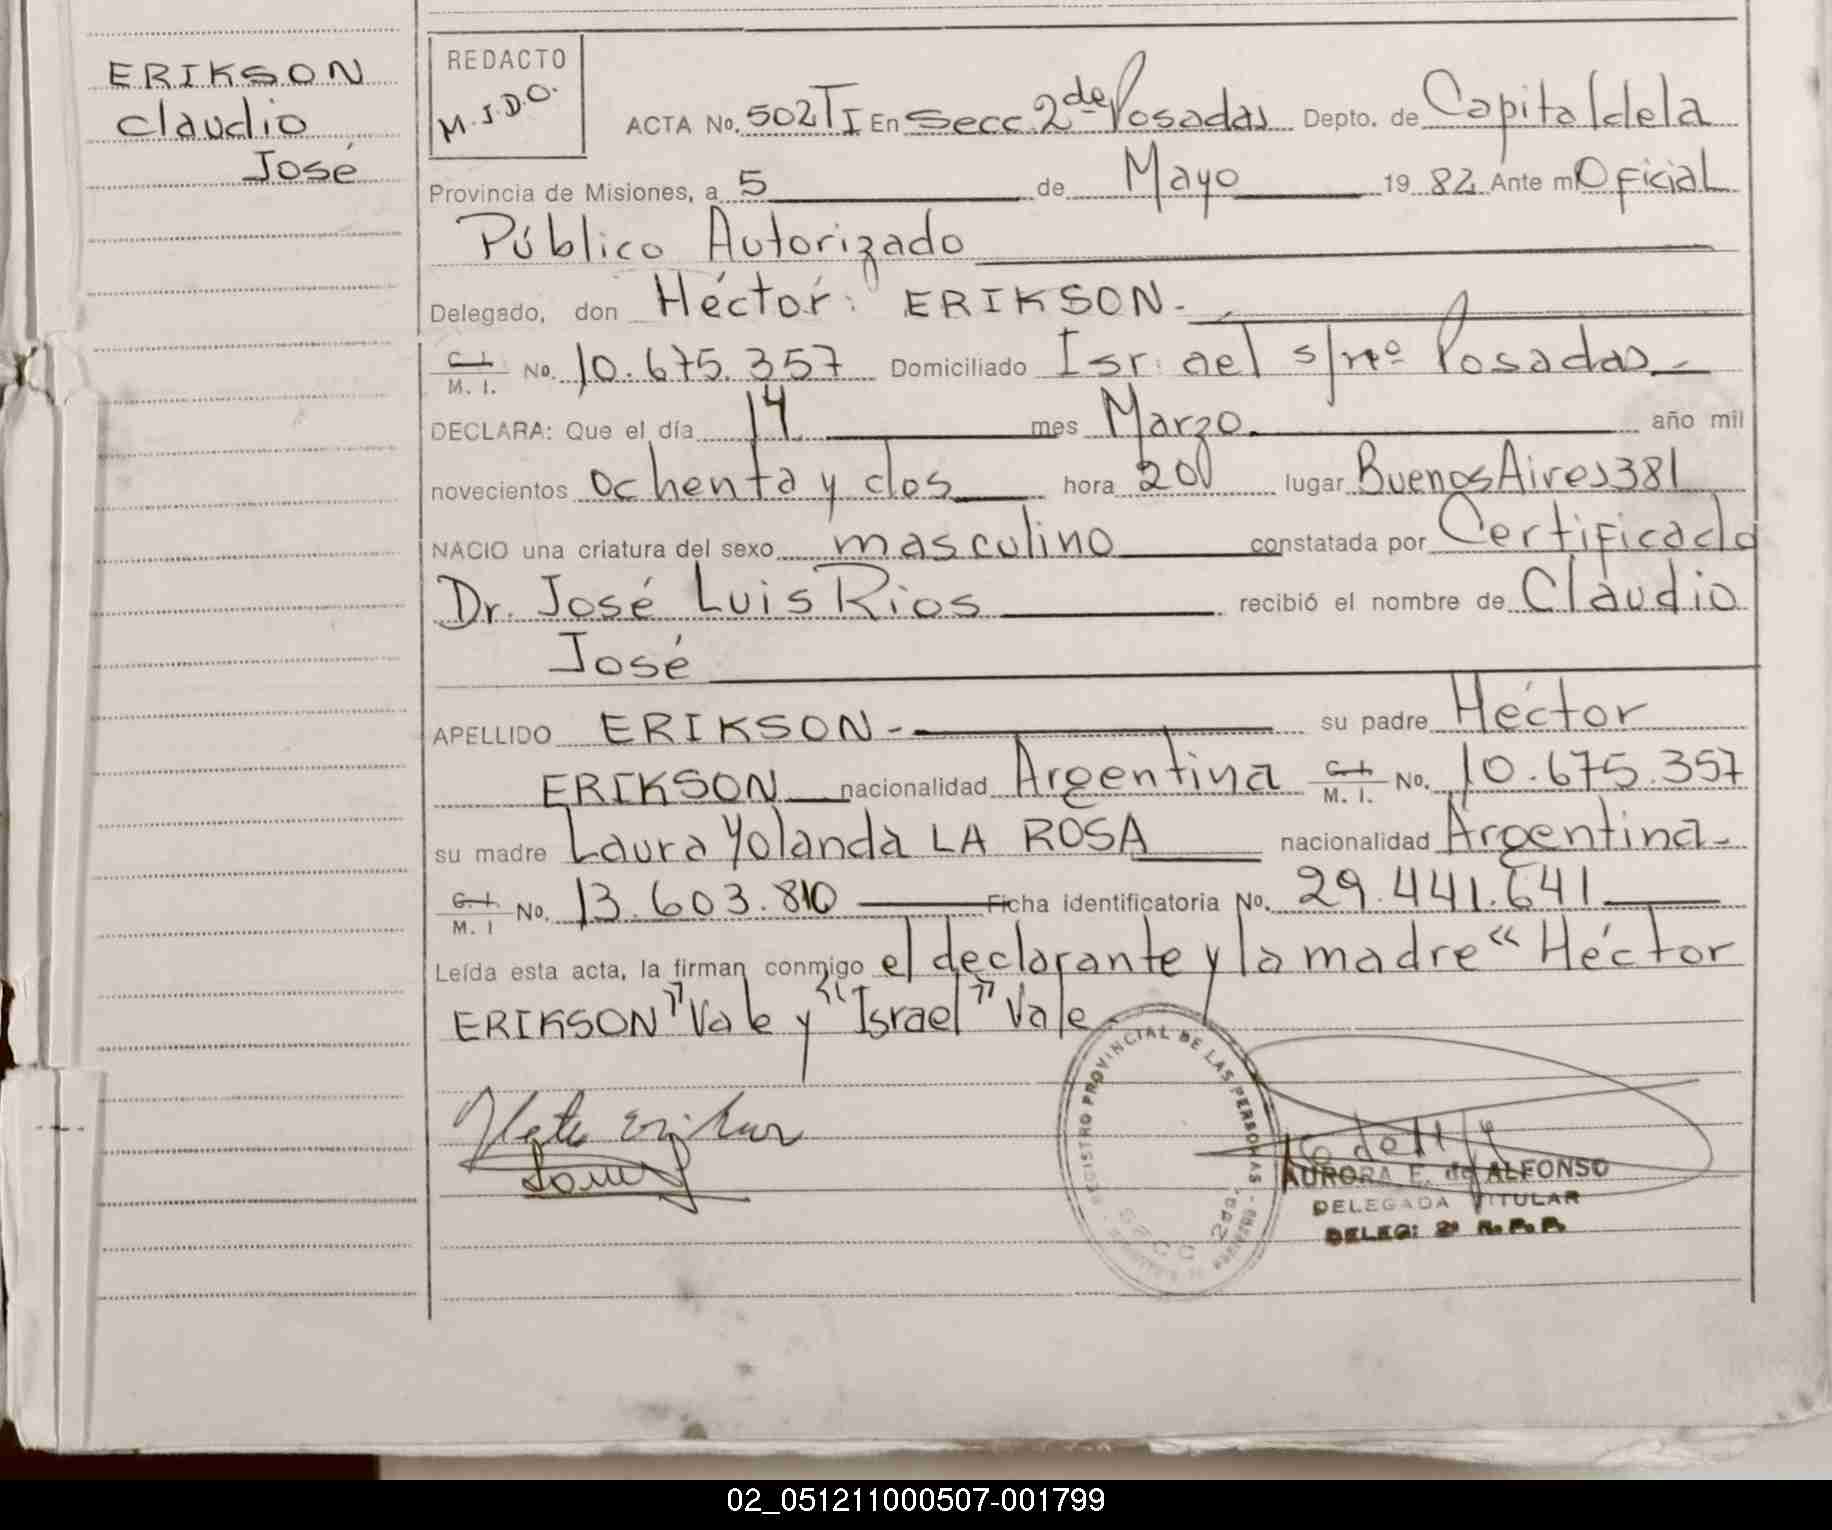 ERIKSON
Claudio
José
REDACTO
M.J.D.O.
ACTA No. 502 TI En Secc. 2da Posadas Depto. de Capital de la
Provincia de Misiones, a 5 de Mayo 19 82 Ante mi Oficial
Público Autorizado
Delegado, don Héctor ERIKSON.-
C. I. M. I. No. 10.675.357 Domiciliado Israel s/nº Posadas
DECLARA: Que el día 14 mes Marzo año mil
novecientos ochenta y dos hora 20 lugar Buenos Aires 381
NACIO una criatura del sexo masculino constatada por Certificado
Dr. José Luis Rios recibió el nombre de Claudio
José
APELLIDO ERIKSON- su padre Héctor
ERIKSON nacionalidad Argentina C. I. M. I. No. 10.675.357
su madre Laura Yolanda LA ROSA nacionalidad Argentina-
C. I. M. I No. 13.603.810 Ficha identificatoria No. 29.441.641
Leída esta acta, la firman conmigo el declarante y la madre "Héctor
ERIKSON" Vale y "Israel" Vale
REGISTRO PROVINCIAL DE LAS PERSONAS
SECC. 2da.
AURORA E. de ALFONSO
DELEGADA TITULAR
DELEG: 2ª R.P.P.
02_051211000507-001799